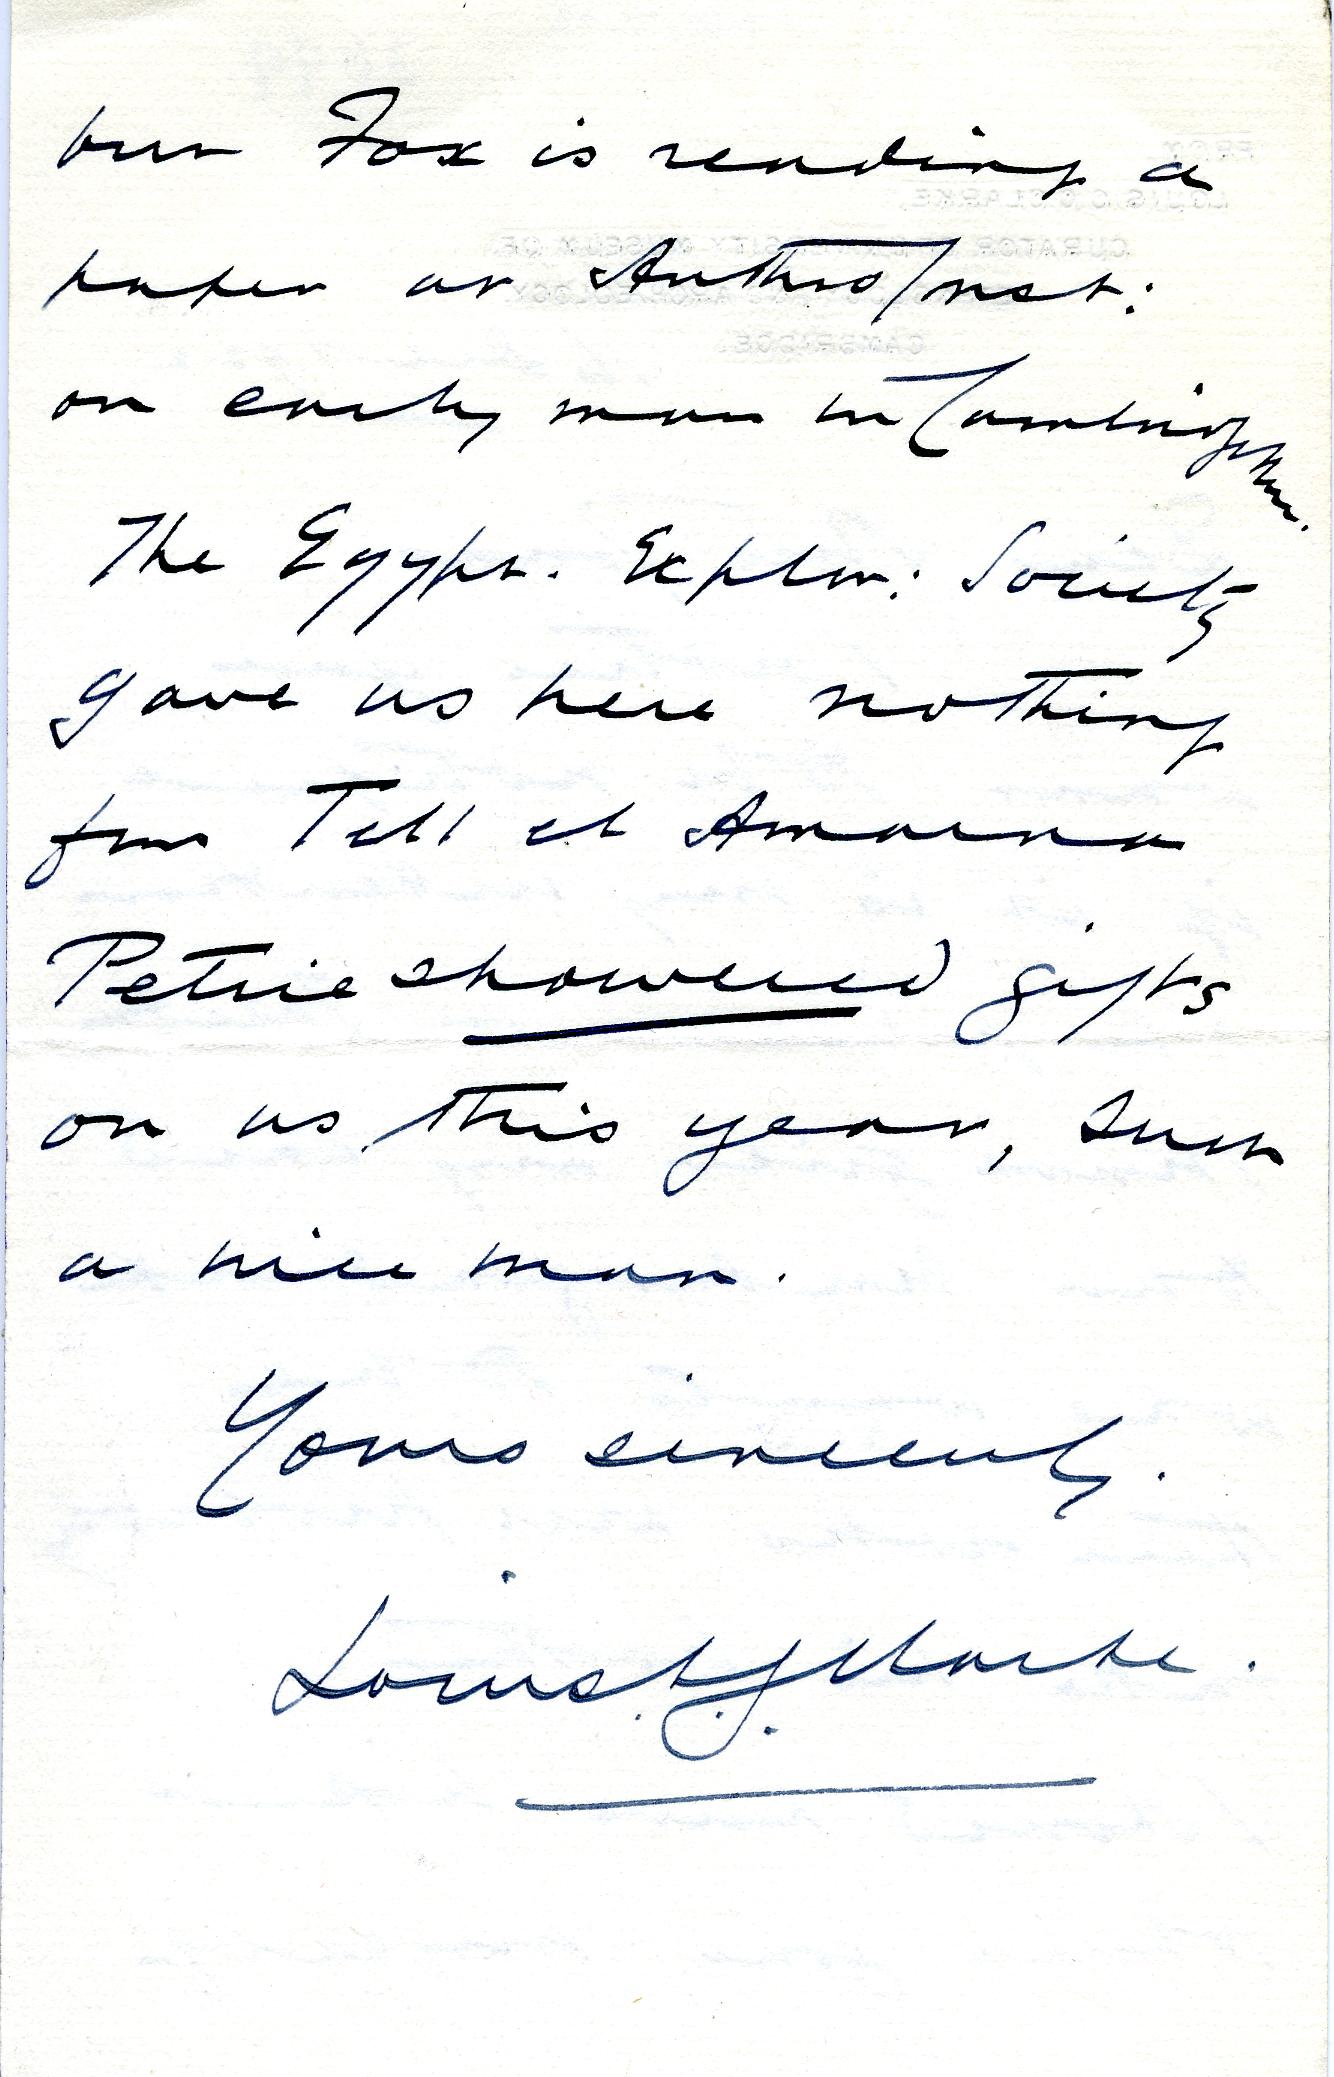 but Fox is reading a
paper at Anthro Inst:
on early man in Cambridgeshire.
The Egypt. Explor: Society
gave us here nothing
from Tell el Amarna
Petrie showered gifts
on us this year, such
a nice man.
Yours sincerely.
Louis. C. G. Clarke.